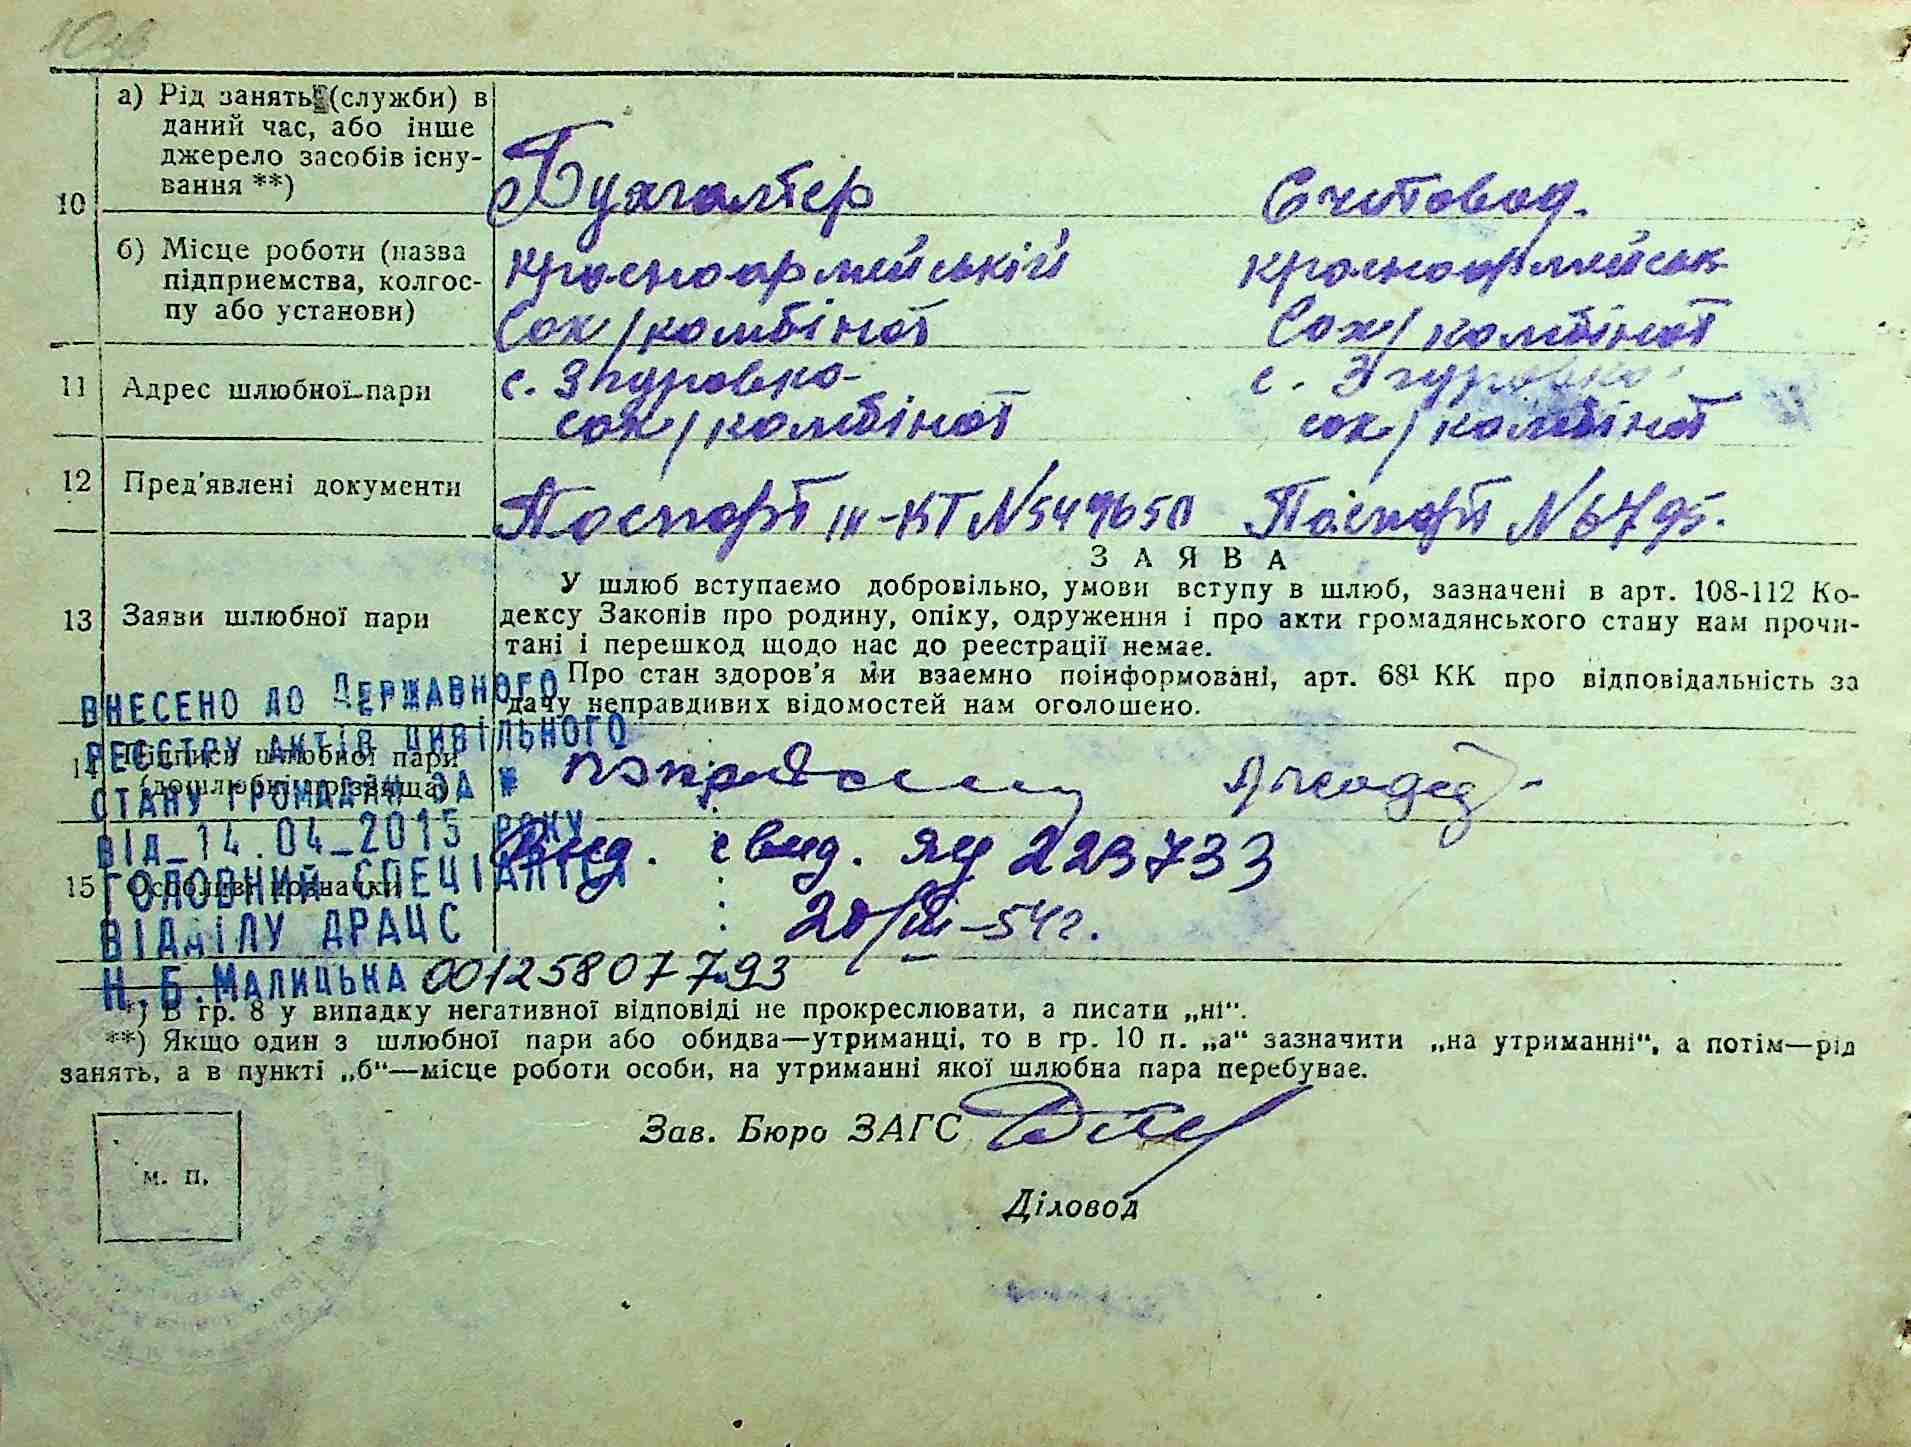 10
а) Рід занять (служби) в
даний час, або інше
джерело засобів існу-
вання **)
Бухгалтер
Счетовод.
б) Місце роботи (назва
підприємства, колгос-
пу або установи)
Красноармейській
Сох/комбінат
Красноармейськ
Сох/комбінат
11
Адрес шлюбної пари
с. Згуровка
сох/комбінат
с. Згуровка
сох/комбінат
12
Пред'явлені документи
Паспорт III-КТ N549650
Паспорт N6795.
ЗАЯВА
13
Заяви шлюбної пари
У шлюб вступаємо добровільно, умови вступу в шлюб, зазначені в арт. 108-112 Ко-
дексу Законів про родину, опіку, одруження і про акти громадянського стану нам прочи-
тані і перешкод щодо нас до реєстрації немає.
Про стан здоров'я ми взаємно поінформовані, арт. 68¹ КК про відповідальність за
дачу неправдивих відомостей нам оголошено.
14
Підписи шлюбної пари
(дошлюбні прізвища)
15
Особливі позначки
Выд. свид. яц 223733
20/III-54г.
ВНЕСЕНО ДО ДЕРЖАВНОГО
РЕЄСТРУ АКТІВ ЦИВІЛЬНОГО
СТАНУ ГРОМАДЯН ЗА №
ВІД_14.04_2015 РОКУ
ГОЛОВНИЙ СПЕЦІАЛІСТ
ВІДДІЛУ ДРАЦС
Н.Б.МАЛИЦЬКА 00125807793
*) В гр. 8 у випадку негативної відповіді не прокреслювати, а писати „ні“.
**) Якщо один з шлюбної пари або обидва—утриманці, то в гр. 10 п. „а“ зазначити „на утриманні“, а потім—рід
занять, а в пункті „б“—місце роботи особи, на утриманні якої шлюбна пара перебуває.
Зав. Бюро ЗАГС
м. п.
Діловод